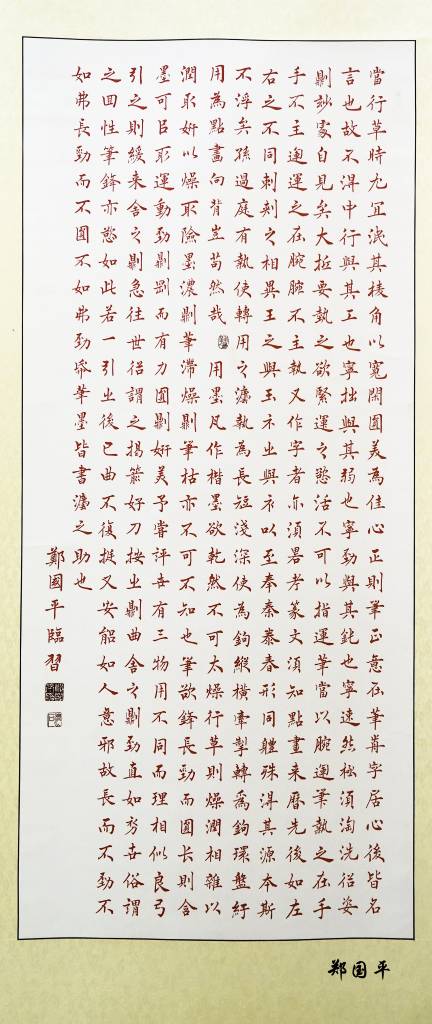 當行草時尤宜泯其棱角以寬閑圓美為佳心正則筆正意在筆前字居心後皆名
言也故不得中行與其工也寧拙與其弱也寧勁與其鈍也寧速然極須淘洗俗姿
則妙處自見矣大抵要執之欲緊運之欲活不可以指運筆當以腕運筆執之在手
手不主運運之在腕腕不主執又作字者亦須畧考篆文須知點畫来歷先後如左
右之不同刺剌之相異王之與玉示之與衣以至奉秦泰春形同體殊得其源本斯
不浮矣孫過庭有執使轉用之法執為長短淺深使為鉤縱橫牽掣轉為鉤環盤紆
用為點畫向背豈苟然哉 用墨凡作楷墨欲乾然不可太燥行草則燥潤相雜以
潤取妍以燥取險墨濃則筆滯燥則筆枯亦不可不知也筆欲鋒長勁而圓長則含
墨可以取運動勁則剛而有力圓則妍美予嘗評世有三物用不同而理相似良弓
引之則緩来舍之則急往世俗謂之揭箭好刀按之則曲舍之則勁直如初世俗謂
之回性筆鋒亦欲如此若一引之後已曲不復挺又安能如人意邪故長而不勁不
如弗長勁而不圓不如弗勁紙筆墨皆書法之助也
鄭國平臨習
郑国平